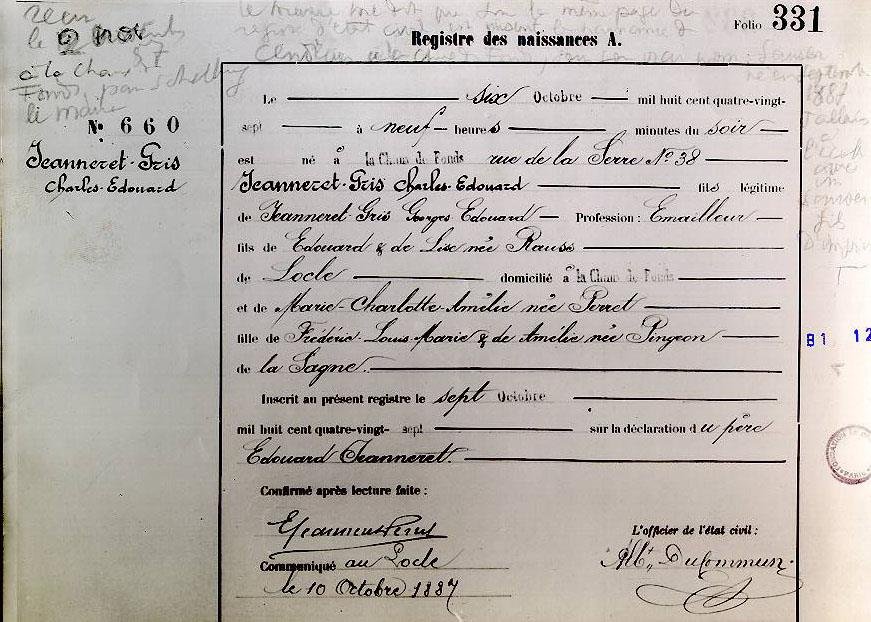 Folio 331
Registre des naissances A.
à la Chaux
Fonds, par
le maire
N° 660
Jeanneret-Gris
Charles-Edouard
Le six Octobre mil huit cent quatre-vingt-
sept à neuf heures minutes du soir
est né à la Chaux de Fonds rue de la Serre N° 38
Jeanneret-Gris Charles-Edouard fils légitime
de Jeanneret Gris Georges Edouard Profession : Emailleur
fils de Edouard & de Lise née Rauss
de Locle domicilié à la Chaux de Fonds
et de Marie-Charlotte-Amélie née Perret
fille de Frédéric-Louis-Marie & de Amélie née Pingeon
de la Sagne.
Inscrit au présent registre le sept Octobre
mil huit cent quatre-vingt- sept sur la déclaration du père
Edouard Jeanneret.
Confirmé après lecture faite :
L'officier de l'état civil :
Albt. Ducommun.
Communiqué au Locle
le 10 Octobre 1887
1887
B1 12